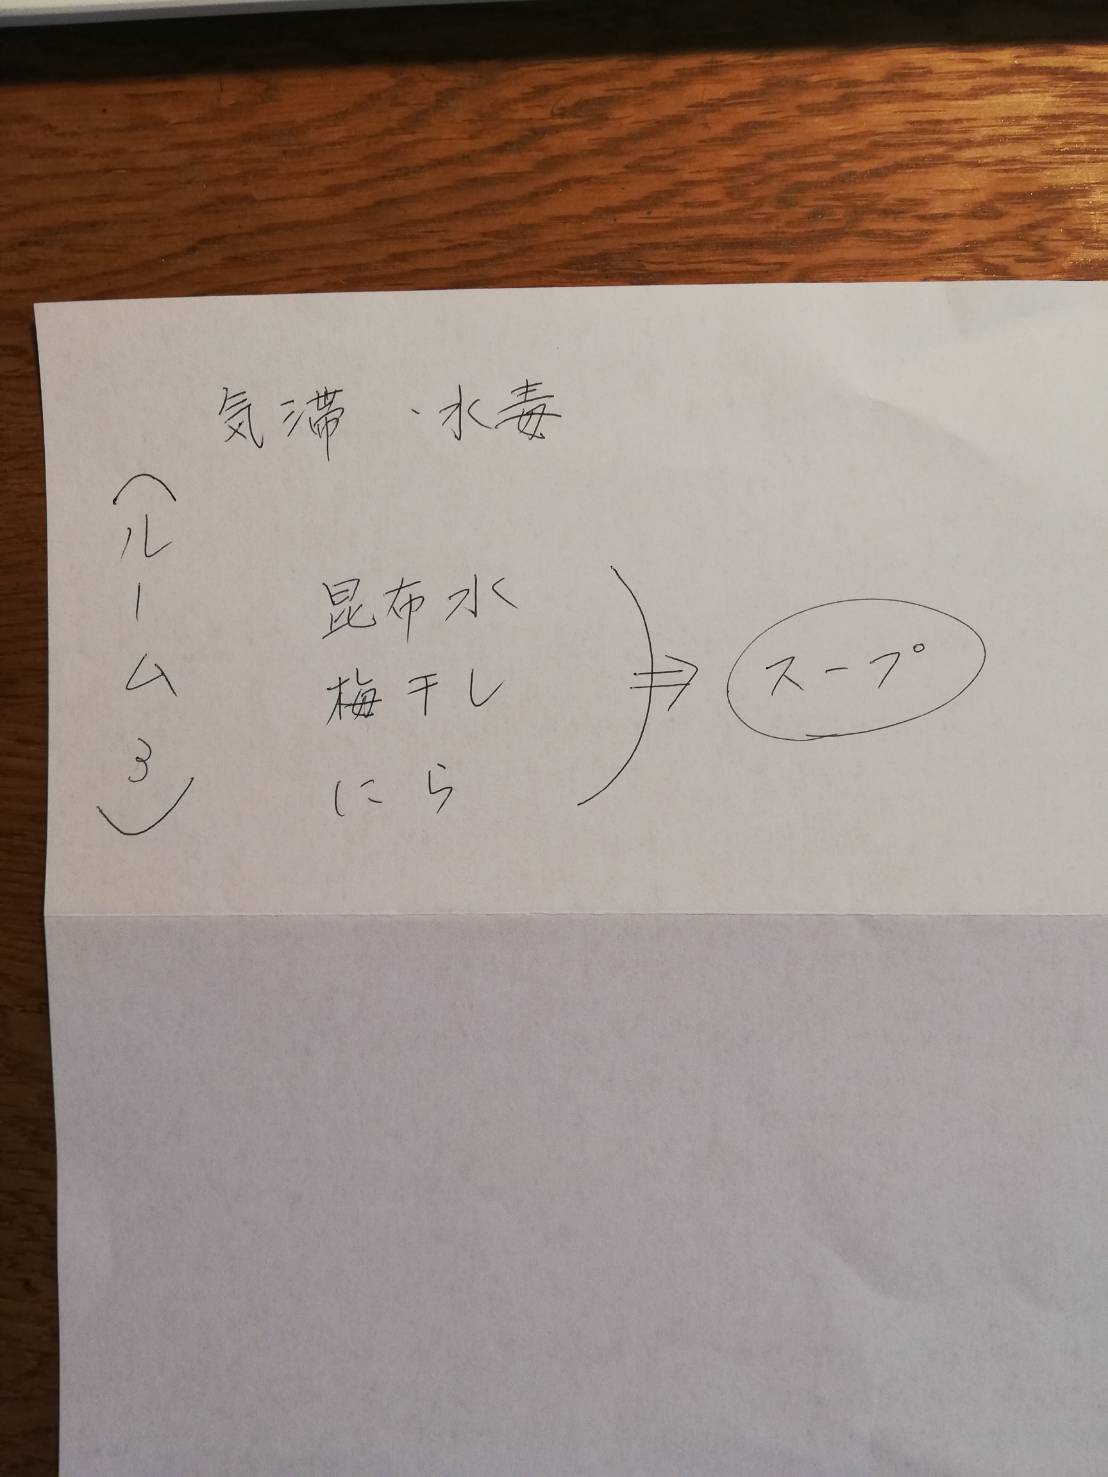 気滞・水毒
(ルーム3)
昆布水
梅干し
にら
⇒ スープ